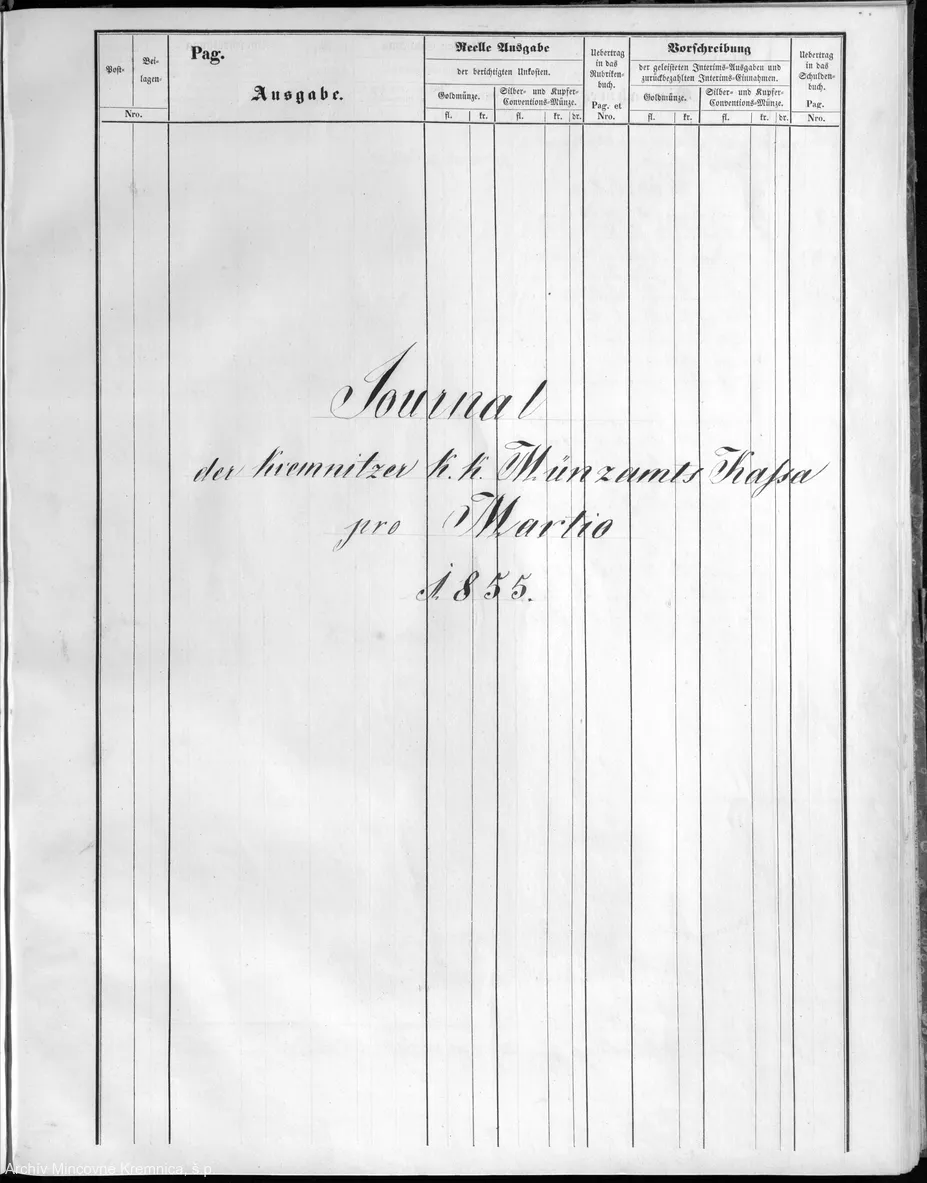 Pag.
Ausgabe.
Post-
Bei-
lagen-
Nro.
Reelle Ausgabe
der berichtigten Unkosten.
Goldmünze.
Silber- und Kupfer-
Conventions-Münze.
fl. kr. fl. kr. dr.
Uebertrag
in das
Rubriken-
buch.
Pag. et
Nro.
Vorschreibung
der geleisteten Interims-Ausgaben und
zurückbezahlten Interims-Einnahmen.
Goldmünze.
Silber- und Kupfer-
Conventions-Münze.
fl. kr. fl. kr. dr.
Uebertrag
in das
Schulden-
buch.
Pag.
Nro.
Journal
der kremnitzer k. k. Münzamts Kaſsa
pro Martio
1855.
Archív Mincovne Kremnica, š.p.